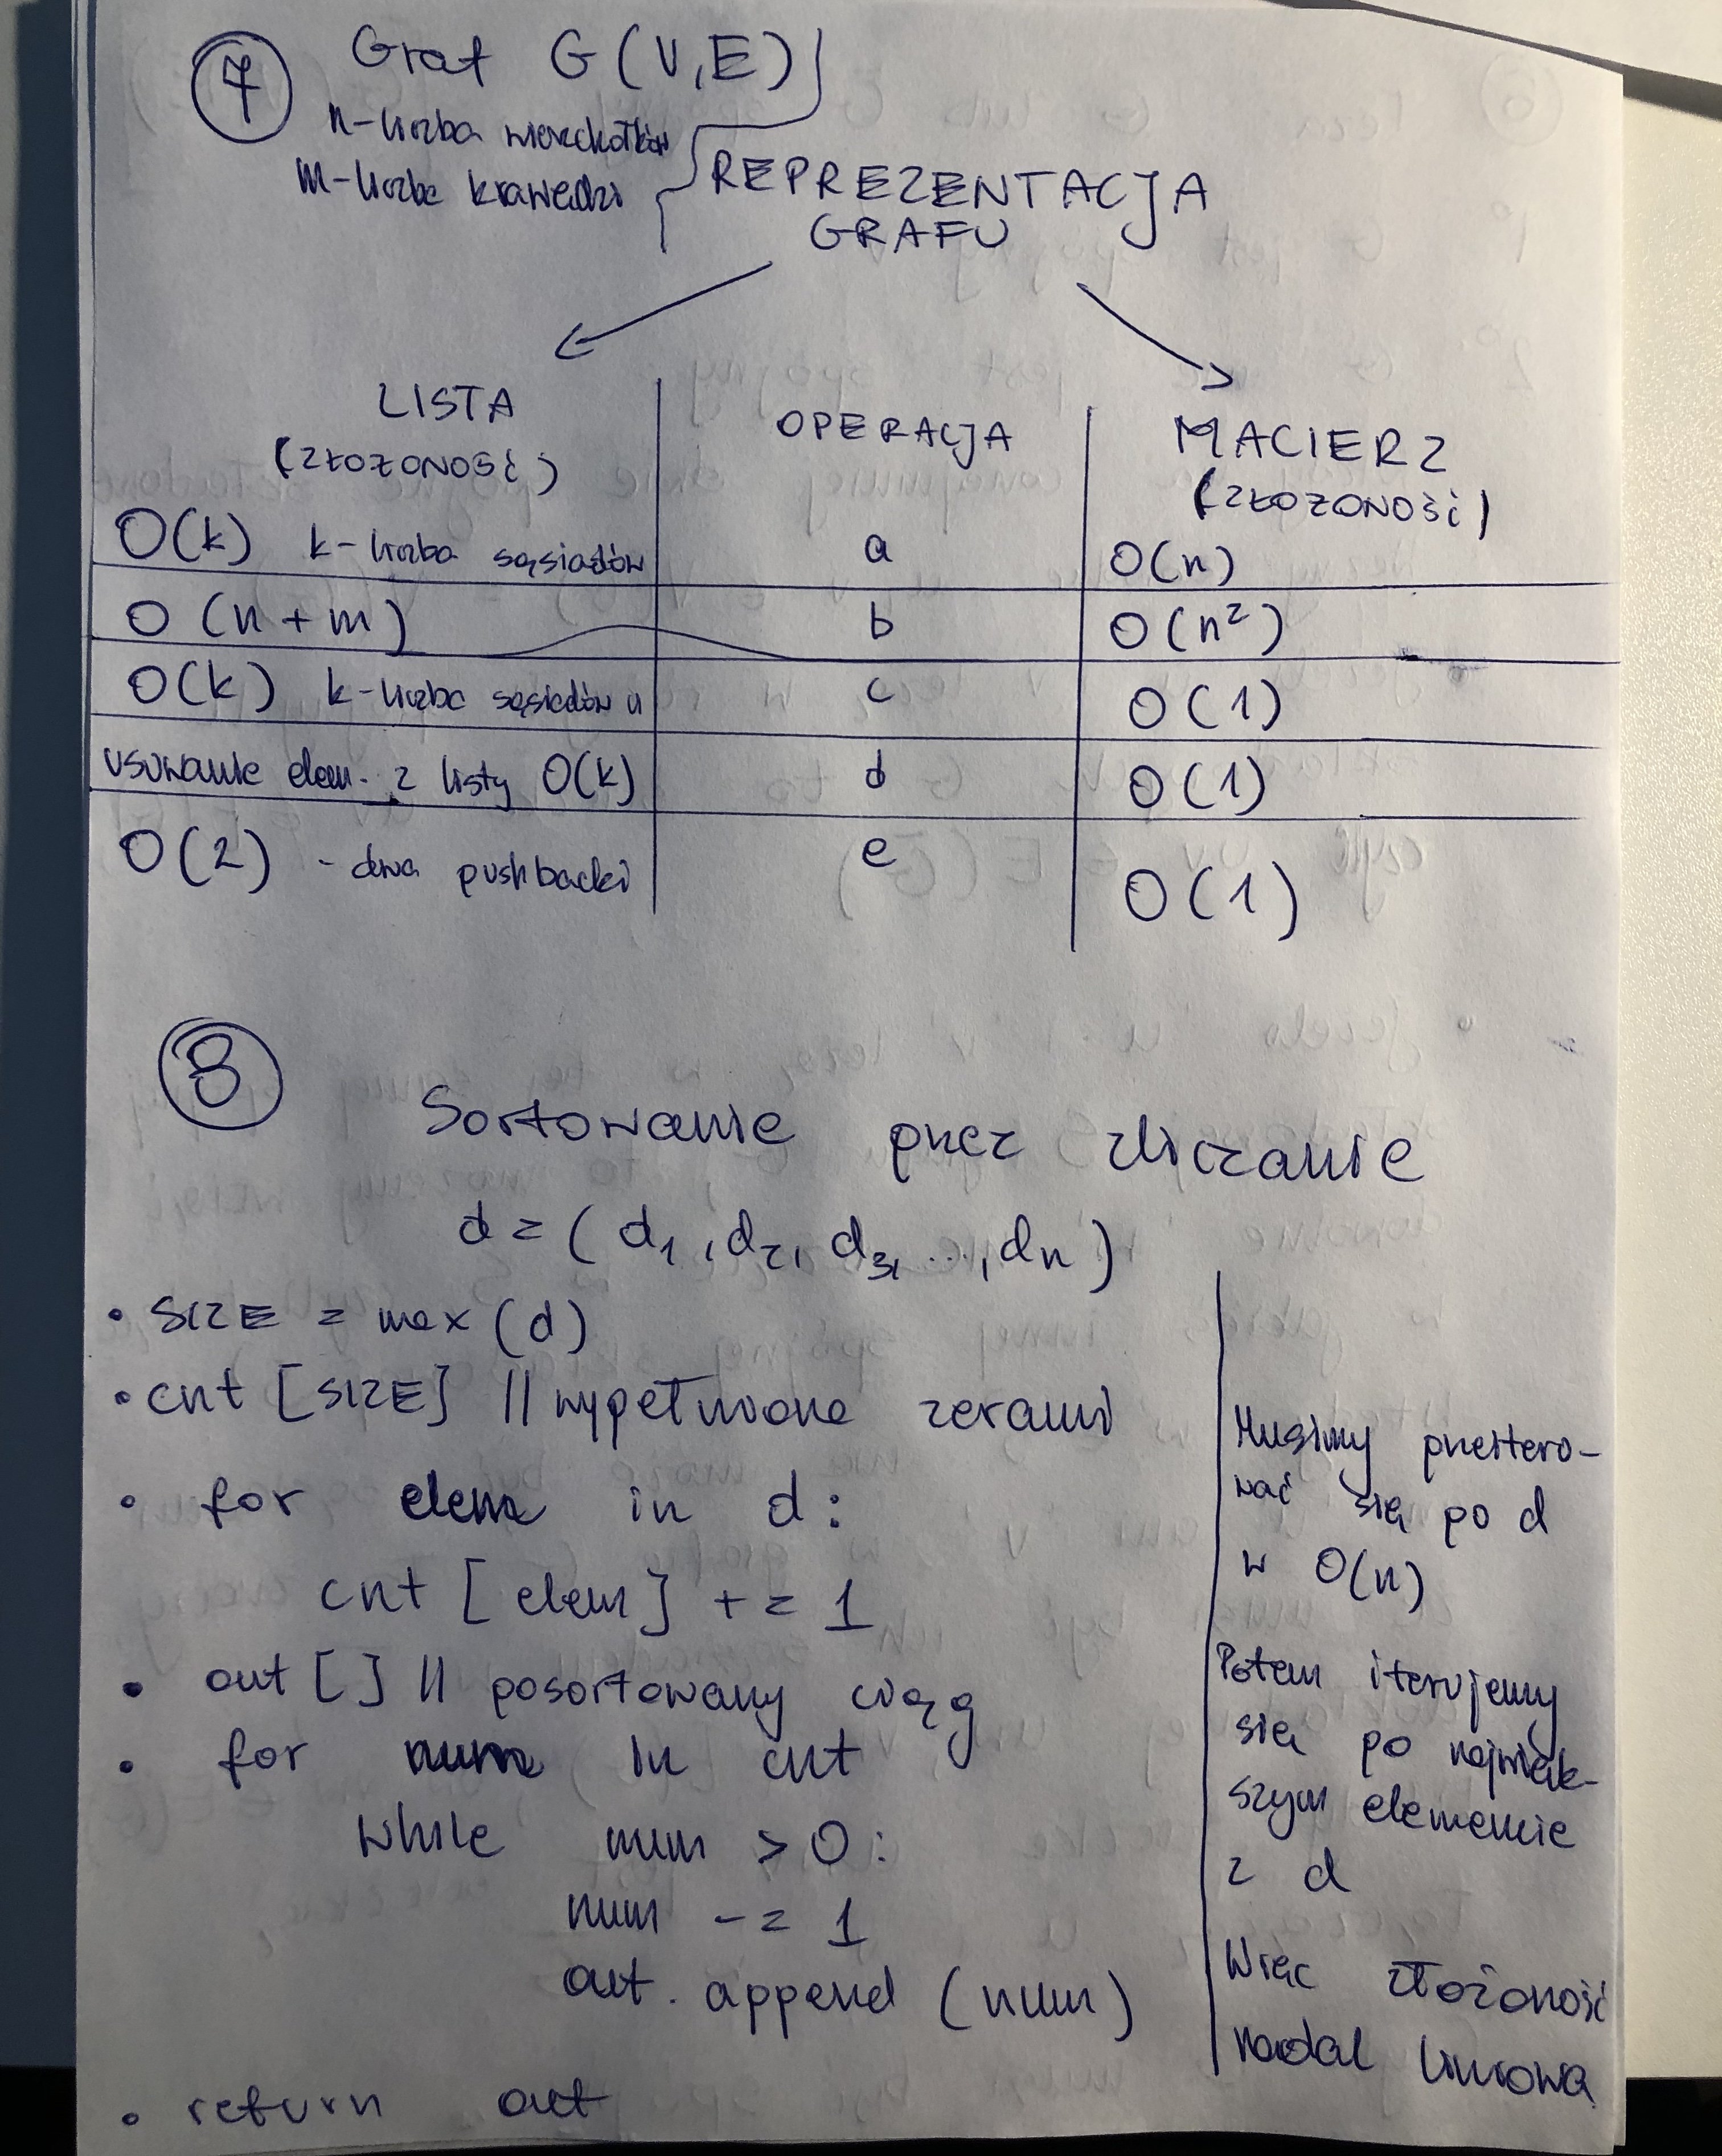 7 Graf G(V,E)
n-liczba wierzchołków
m-liczba krawędzi
REPREZENTACJA
GRAFU
LISTA
(ZŁOŻONOŚĆ)
OPERACJA
MACIERZ
(ZŁOŻONOŚĆ)
O(k) k-liczba sąsiadów a O(n)
O(n+m) b O(n²)
O(k) k-liczba sąsiadów u c O(1)
usuwanie elem. z listy O(k) d O(1)
O(2) - dwa pushbacki e O(1)
8
Sortowanie przez zliczanie
d = (d₁, d₂, d₃, ..., dn)
• SIZE = max(d)
• cnt [SIZE] // wypełnione zerami
• for elem in d:
cnt [elem] += 1
• out [] // posortowany ciąg
• for num in cnt
while num > 0:
num -= 1
out.append(num)
• return out
Musimy przeitero-
wać się po d
w O(n)
Potem iterujemy
się po najwięk-
szym elemencie
z d
Więc złożoność
nadal liniowa